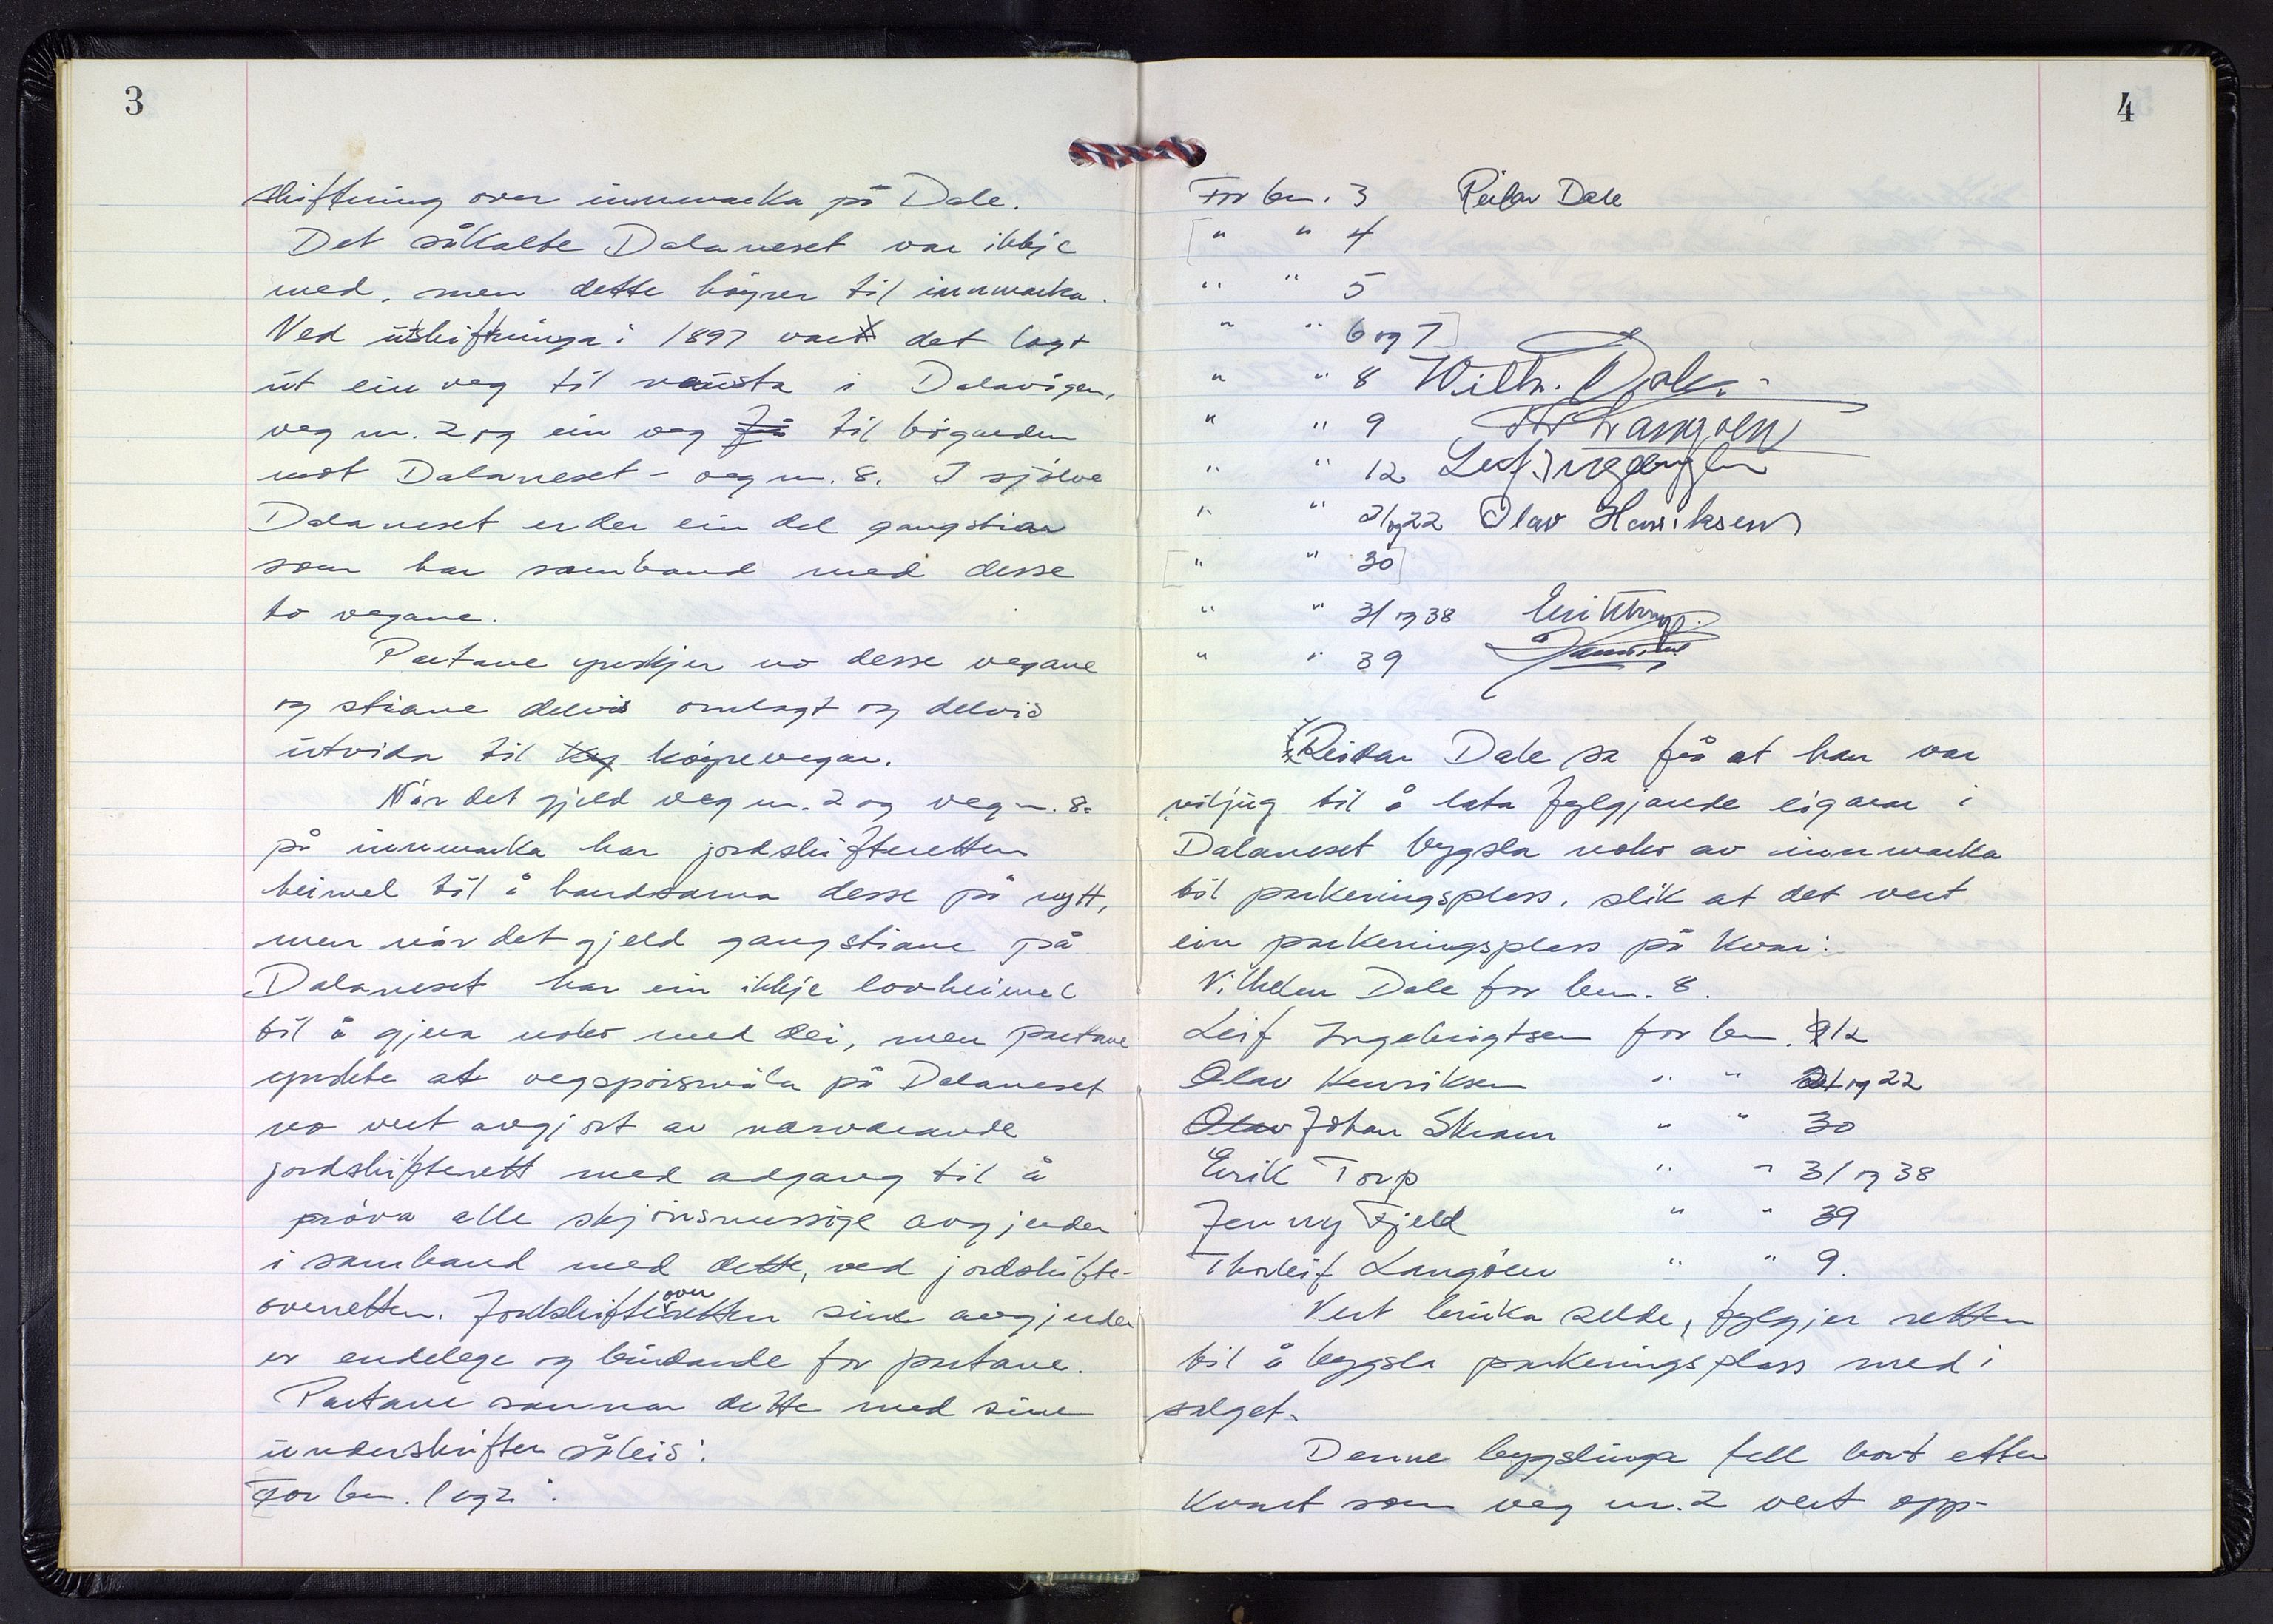 3
skiftning over innmarka på Dale.
Det såkalte Dalaneset var ikkje
med, men dette høyrer til innmarka.
Ved utskiftninga i 1897 vart det lagt
ut ein veg til nausta i Dalavågen,
veg nr. 2 og ein veg frå til bøgarden
mot Dalaneset - veg nr. 8. I sjølve
Dalaneset er der ein del gangstiar
som har samband med desse
to vegane.
Partane ynskjer no desse vegane
og stiane delvis omlagt og delvis
utvida til køyrevegar.
Når det gjeld veg nr. 2 og veg nr. 8.
på innmarka har jordskifteretten
heimel til å handsama desse på nytt,
men når det gjeld gangstiane på
Dalaneset har ein ikkje lovheimel
til å gjera noko med dei, men partane
ynskte at vegspørsmåla på Dalaneset
no vert avgjort av nærverande
jordskifterett med adgang til å
prøva alle skjønsmessige avgjerder
i samband med dette, ved jordskifte-
overetten. Jordskifteoveretten sine avgjerder
er endelege og bindande for partane.
Partane sannar dette med sine
underskrifter såleis:
For bnr. 1 og 2:
4
For bnr. 3 Reidar Dale
[" " 4
" " 5
" " 6 og 7]
" " 8 Wilh. Dale
" " 9 Th Langøen
" " 12 Leif Ingebrigtsen
" " 21 og 22 Olav Henriksen
[" " 30]
" " 31 og 38 Erik Thorp.
" " 39
Reidar Dale sa frå at han var
viljug til å lata fylgjande eigarar i
Dalaneset bygsla noko av innmarka
til parkeringsplass, slik at det vert
ein parkeringsplass på kvar:
Vilhelm Dale for bnr. 8.
Leif Ingebrigtsen for bnr. 12
Olav Henriksen " " 21 og 22
Olav Johan Skram " " 30
Erik Torp " " 31 og 38
Jenny Fjeld " " 39
Thorleif Langøen " " 9.
Vert bruka selde, fylgjer retten
til å bygsla parkeringsplass med i
salget.
Denne bygslinga fell bort etter
kvart som veg nr. 2 vert opp-